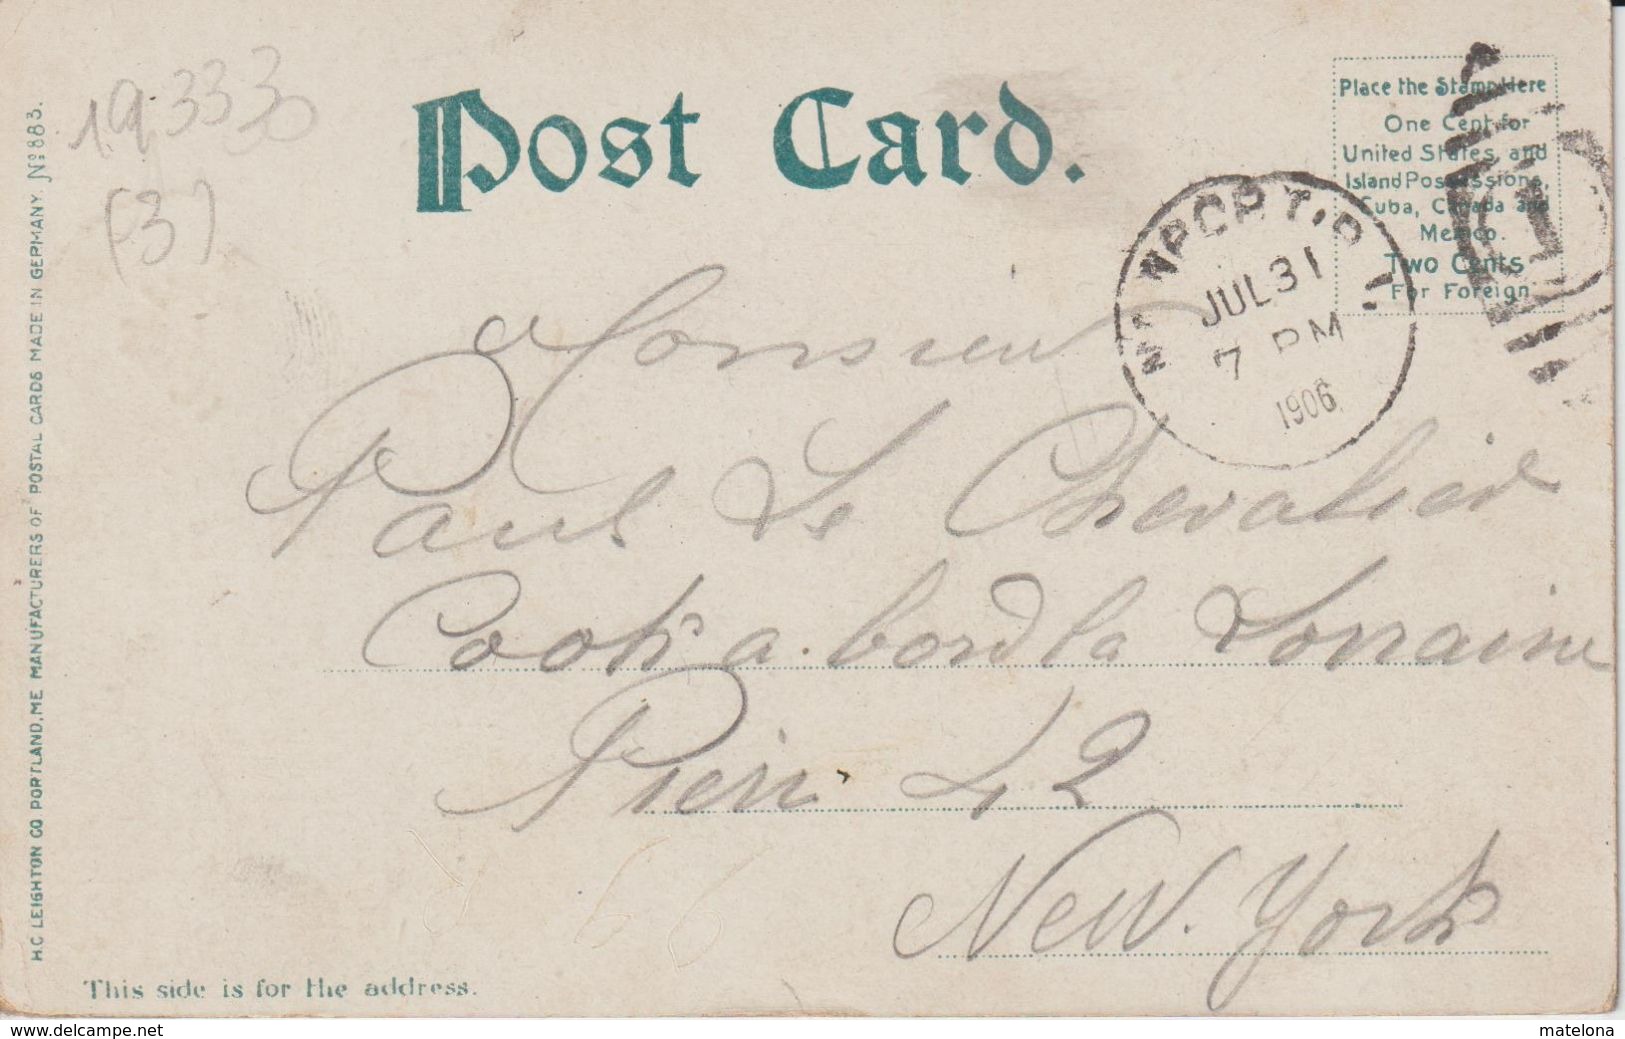 19,3330
(3)
Post Card.
Place the Stamp Here
One Cent for
United States, and
Island Possessions,
Cuba, Canada and
Mexico.
Two Cents
For Foreign
NEWPORT, R.I.
JUL 31
7 PM
1906
Monsieur
Paul Le Chevalier
Cook a bord la Lorraine
Pier 42
New. York
This side is for the address.
H.C. LEIGHTON CO PORTLAND, ME MANUFACTURERS OF POSTAL CARDS MADE IN GERMANY. No 883.
www.delcampe.net
matelona